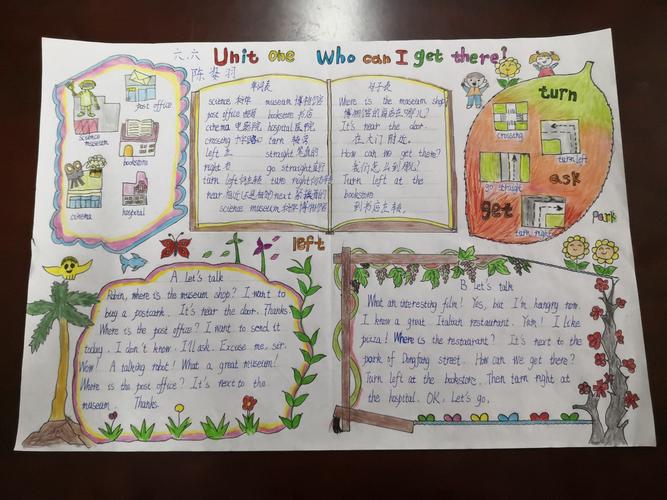 Unit one Who can I get there!
六.六
陈 羽
science museum
post office
bookstore
cinema
hospital
单词表
science 科学 museum 博物馆
post office 邮局 bookstore 书店
cinema 电影院 hospital 医院
crossing 十字路口 turn 转弯
left 左 straight 笔直的
right 右 go straight 直行
turn left 向左转 turn right 向右转
near 附近 next
science museum 科学博物馆
句子表
Where is the museum shop?
博物馆的商店在哪儿?
It's near the door.
在大门附近。
How can we get there?
我们怎么到那儿?
Turn left at the
bookstore
到书店左转。
turn
crossing
turn left
go straight
ask
get
turn right
Park
left
A Let's talk
Robin, where is the museum shop? I want to
buy a postcard. It's near the door. Thanks.
Where is the post office? I want to send it
today. I don't know. I'll ask. Excuse me, sir.
Wow! A talking robot! What a great museum!
Where is the post office? It's next to the
museam. Thanks.
B Let's talk
What an interesting film! Yes, but I'm hangry now.
I know a great Italian restaurant. Yum! I like
pizza! Where is the restaurant? It's next to the
park of Dongfang street. How can we get there?
Turn left at the bookstore. Then turn right at
the hospital. OK, Let's go.